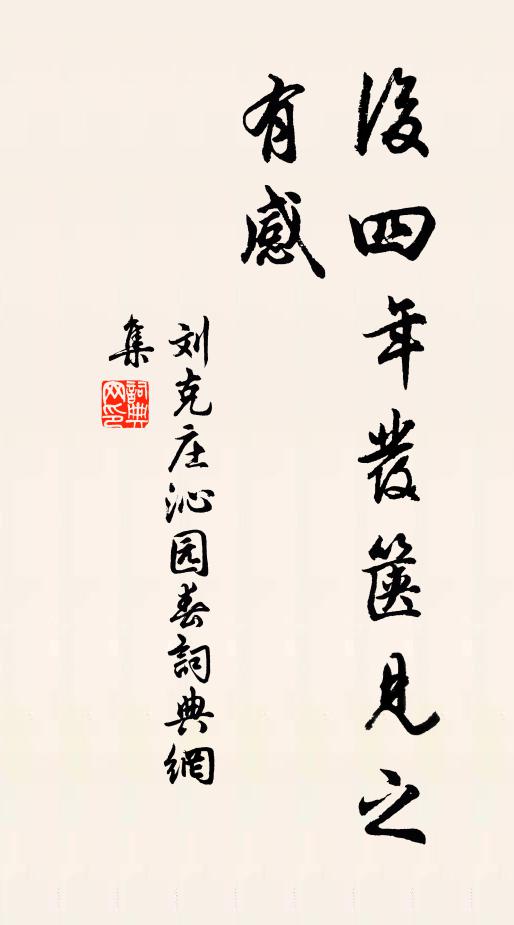 後四年發篋見之
有感
刘克庄沁园春詞典網
集
詞典网印